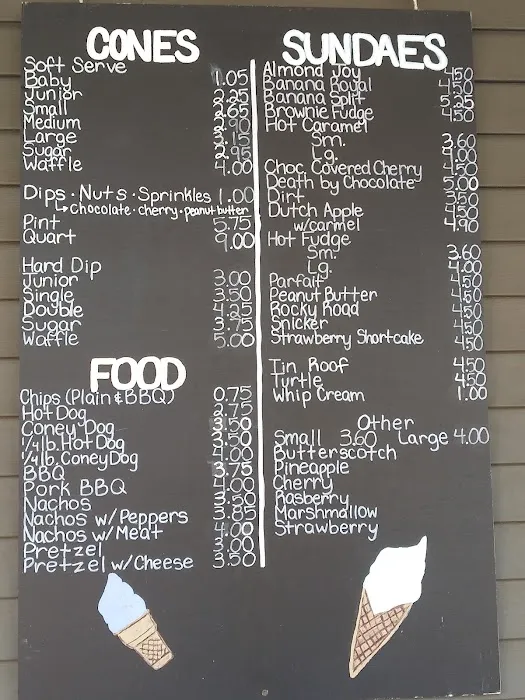 CONES
Soft Serve
Baby 1.05
Junior 2.25
Small 2.65
Medium
Large
Sugar 2.95
Waffle 4.00
Dips · Nuts · Sprinkles 1.00
↳ Chocolate · cherry · peanut butter
Pint 5.75
Quart 9.00
Hard Dip
Junior 3.00
Single 3.50
Double 4.25
Sugar 3.75
Waffle 5.00
FOOD
Chips (Plain & BBQ) 0.75
Hot Dog 2.75
Coney Dog 3.50
1/4 lb. Hot Dog 3.50
1/4 lb. Coney Dog 4.00
BBQ 3.75
Pork BBQ 4.00
Nachos 3.50
Nachos w/ Peppers 3.85
Nachos w/ Meat 4.00
Pretzel 3.00
Pretzel w/ Cheese 3.50
SUNDAES
Almond Joy 4.50
Banana Royal 4.50
Banana Split 5.25
Brownie Fudge 4.50
Hot Caramel
Sm. 3.60
Lg. 4.00
Choc Covered Cherry 4.50
Death by Chocolate 5.00
Dirt 3.50
Dutch Apple 4.50
w/carmel 4.90
Hot Fudge
Sm. 3.60
Lg. 4.00
Parfait 4.50
Peanut Butter 4.50
Rocky Road 4.50
Snicker 4.50
Strawberry Shortcake 4.50
Tin Roof 4.50
Turtle 4.50
Whip Cream 1.00
Other
Small 3.60 Large 4.00
Butterscotch
Pineapple
Cherry
Rasberry
Marshmallow
Strawberry